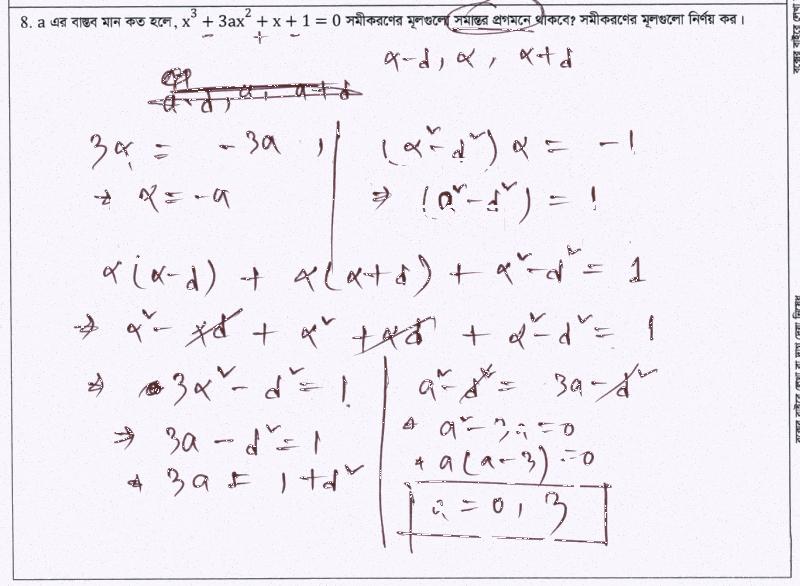 8. a এর বাস্তব মান কত হলে, x³ + 3ax² + x + 1 = 0 সমীকরণের মূলগুলো সমান্তর প্রগমনে থাকবে? সমীকরণের মূলগুলো নির্ণয় কর।
α-d, α, α+d
a-d, a, a+d
3α = -3a,
→ α = -a
(α²-d²) α = -1
⇒ (a²-d²) = 1
α(α-d) + α(α+d) + α²-d² = 1
⇒ α² - αd + α² + αd + α²-d² = 1
⇒ 3α² - d² = 1
⇒ 3a - d² = 1
→ 3a = 1+d²
a²-d² = 3a-d²
→ a²-3a=0
→ a(a-3)=0
a = 0, 3